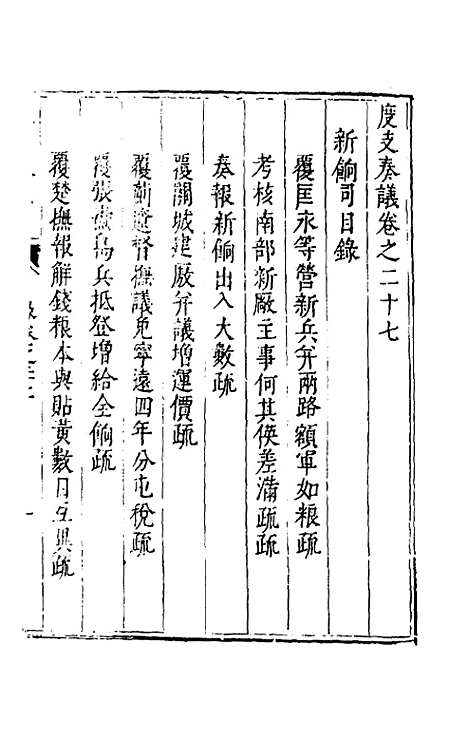 度支奏議卷之二十七
新餉司目錄
覆匡永等營新兵并兩路額軍加粮疏
考核南部新厰主事何其俠差滿疏疏
奏報新餉出入大數疏
覆關城建厫并議增運價疏
覆薊遼督撫議免寧遠四年分屯稅疏
覆張壽島兵抵登增給全餉疏
覆楚撫報解錢粮本與貼黃數目互異疏